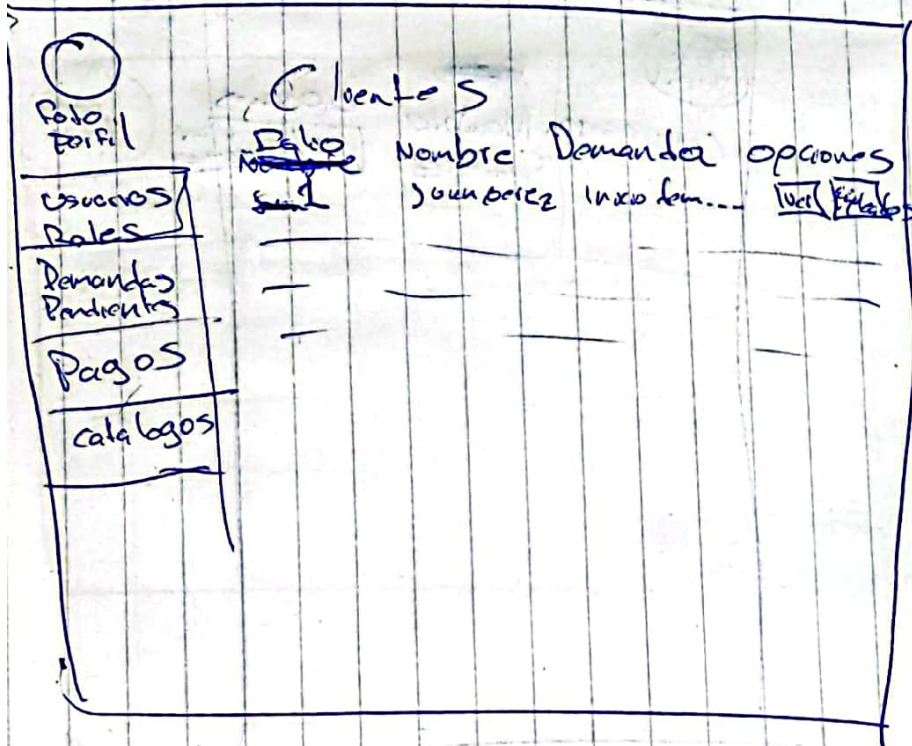 Foto
Perfil
Usuarios
Roles
Demandas
Pendientes
Pagos
catalogos
Clientes
Nombre Demanda opciones
1 Juan perez inicio dem.... Ver